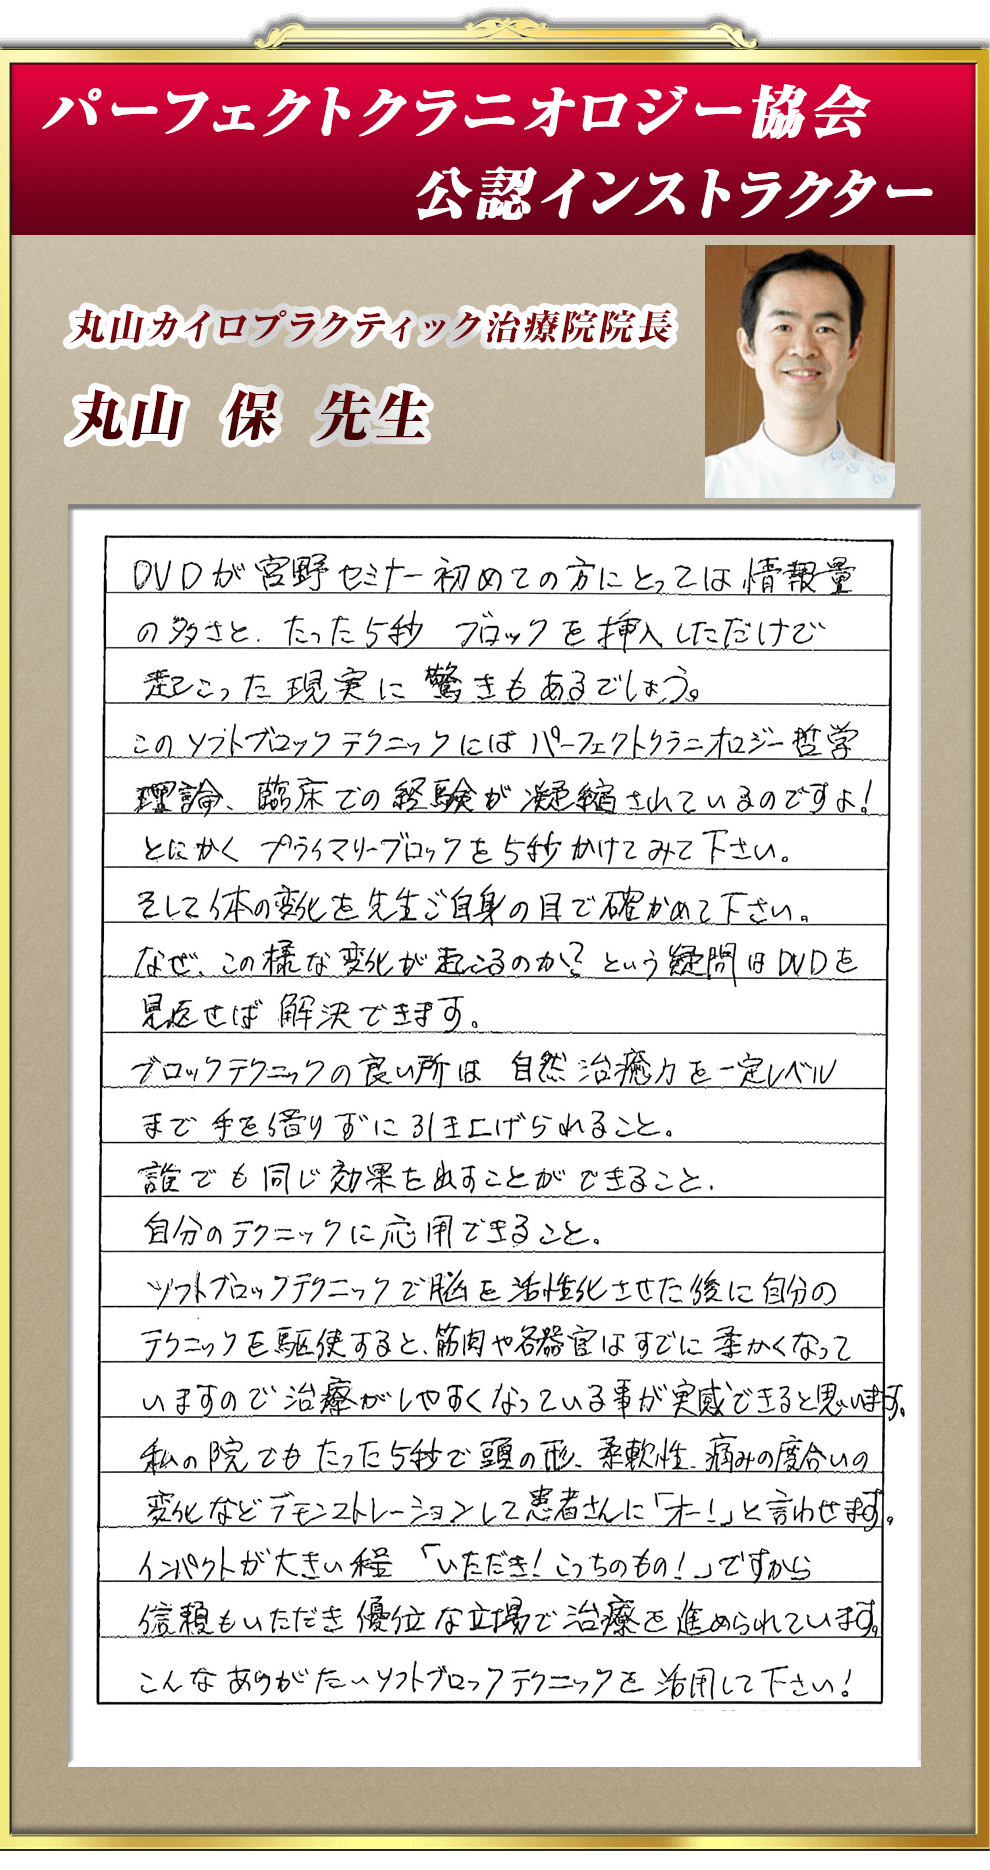 パーフェクトクラニオロジー協会
公認インストラクター
丸山カイロプラクティック治療院院長
丸山 保 先生
DVDが宮野セミナー初めての方にとっては情報量
の多さと、たった5秒 ブロックを挿入しただけで
起こった現実に驚きもあるでしょう。
このソフトブロックテクニックにはパーフェクトクラニオロジー哲学
理論、臨床での経験が凝縮されているのですよ!
とにかくプライマリーブロックを5秒かけてみて下さい。
そして体の変化を先生ご自身の目で確かめて下さい。
なぜ、この様な変化が起こるのか?という疑問はDVDを
見返せば解決できます。
ブロックテクニックの良い所は 自然治癒力を一定レベル
まで手を借りずに引き上げられること。
誰でも同じ効果を出すことができること、
自分のテクニックに応用できること。
ソフトブロックテクニックで脳を活性化させた後に自分の
テクニックを駆使すると、筋肉や各器官はすでに柔かくなって
いますので治療がしやすくなっている事が実感できると思います。
私の院でもたった5秒で頭の形、柔軟性、痛みの度合いの
変化などデモンストレーションして患者さんに「オー!」と言わせます。
インパクトが大きい程「いただき!こっちのもの!」ですから
信頼もいただき優位な立場で治療を進められています。
こんなありがたいソフトブロックテクニックを活用して下さい!